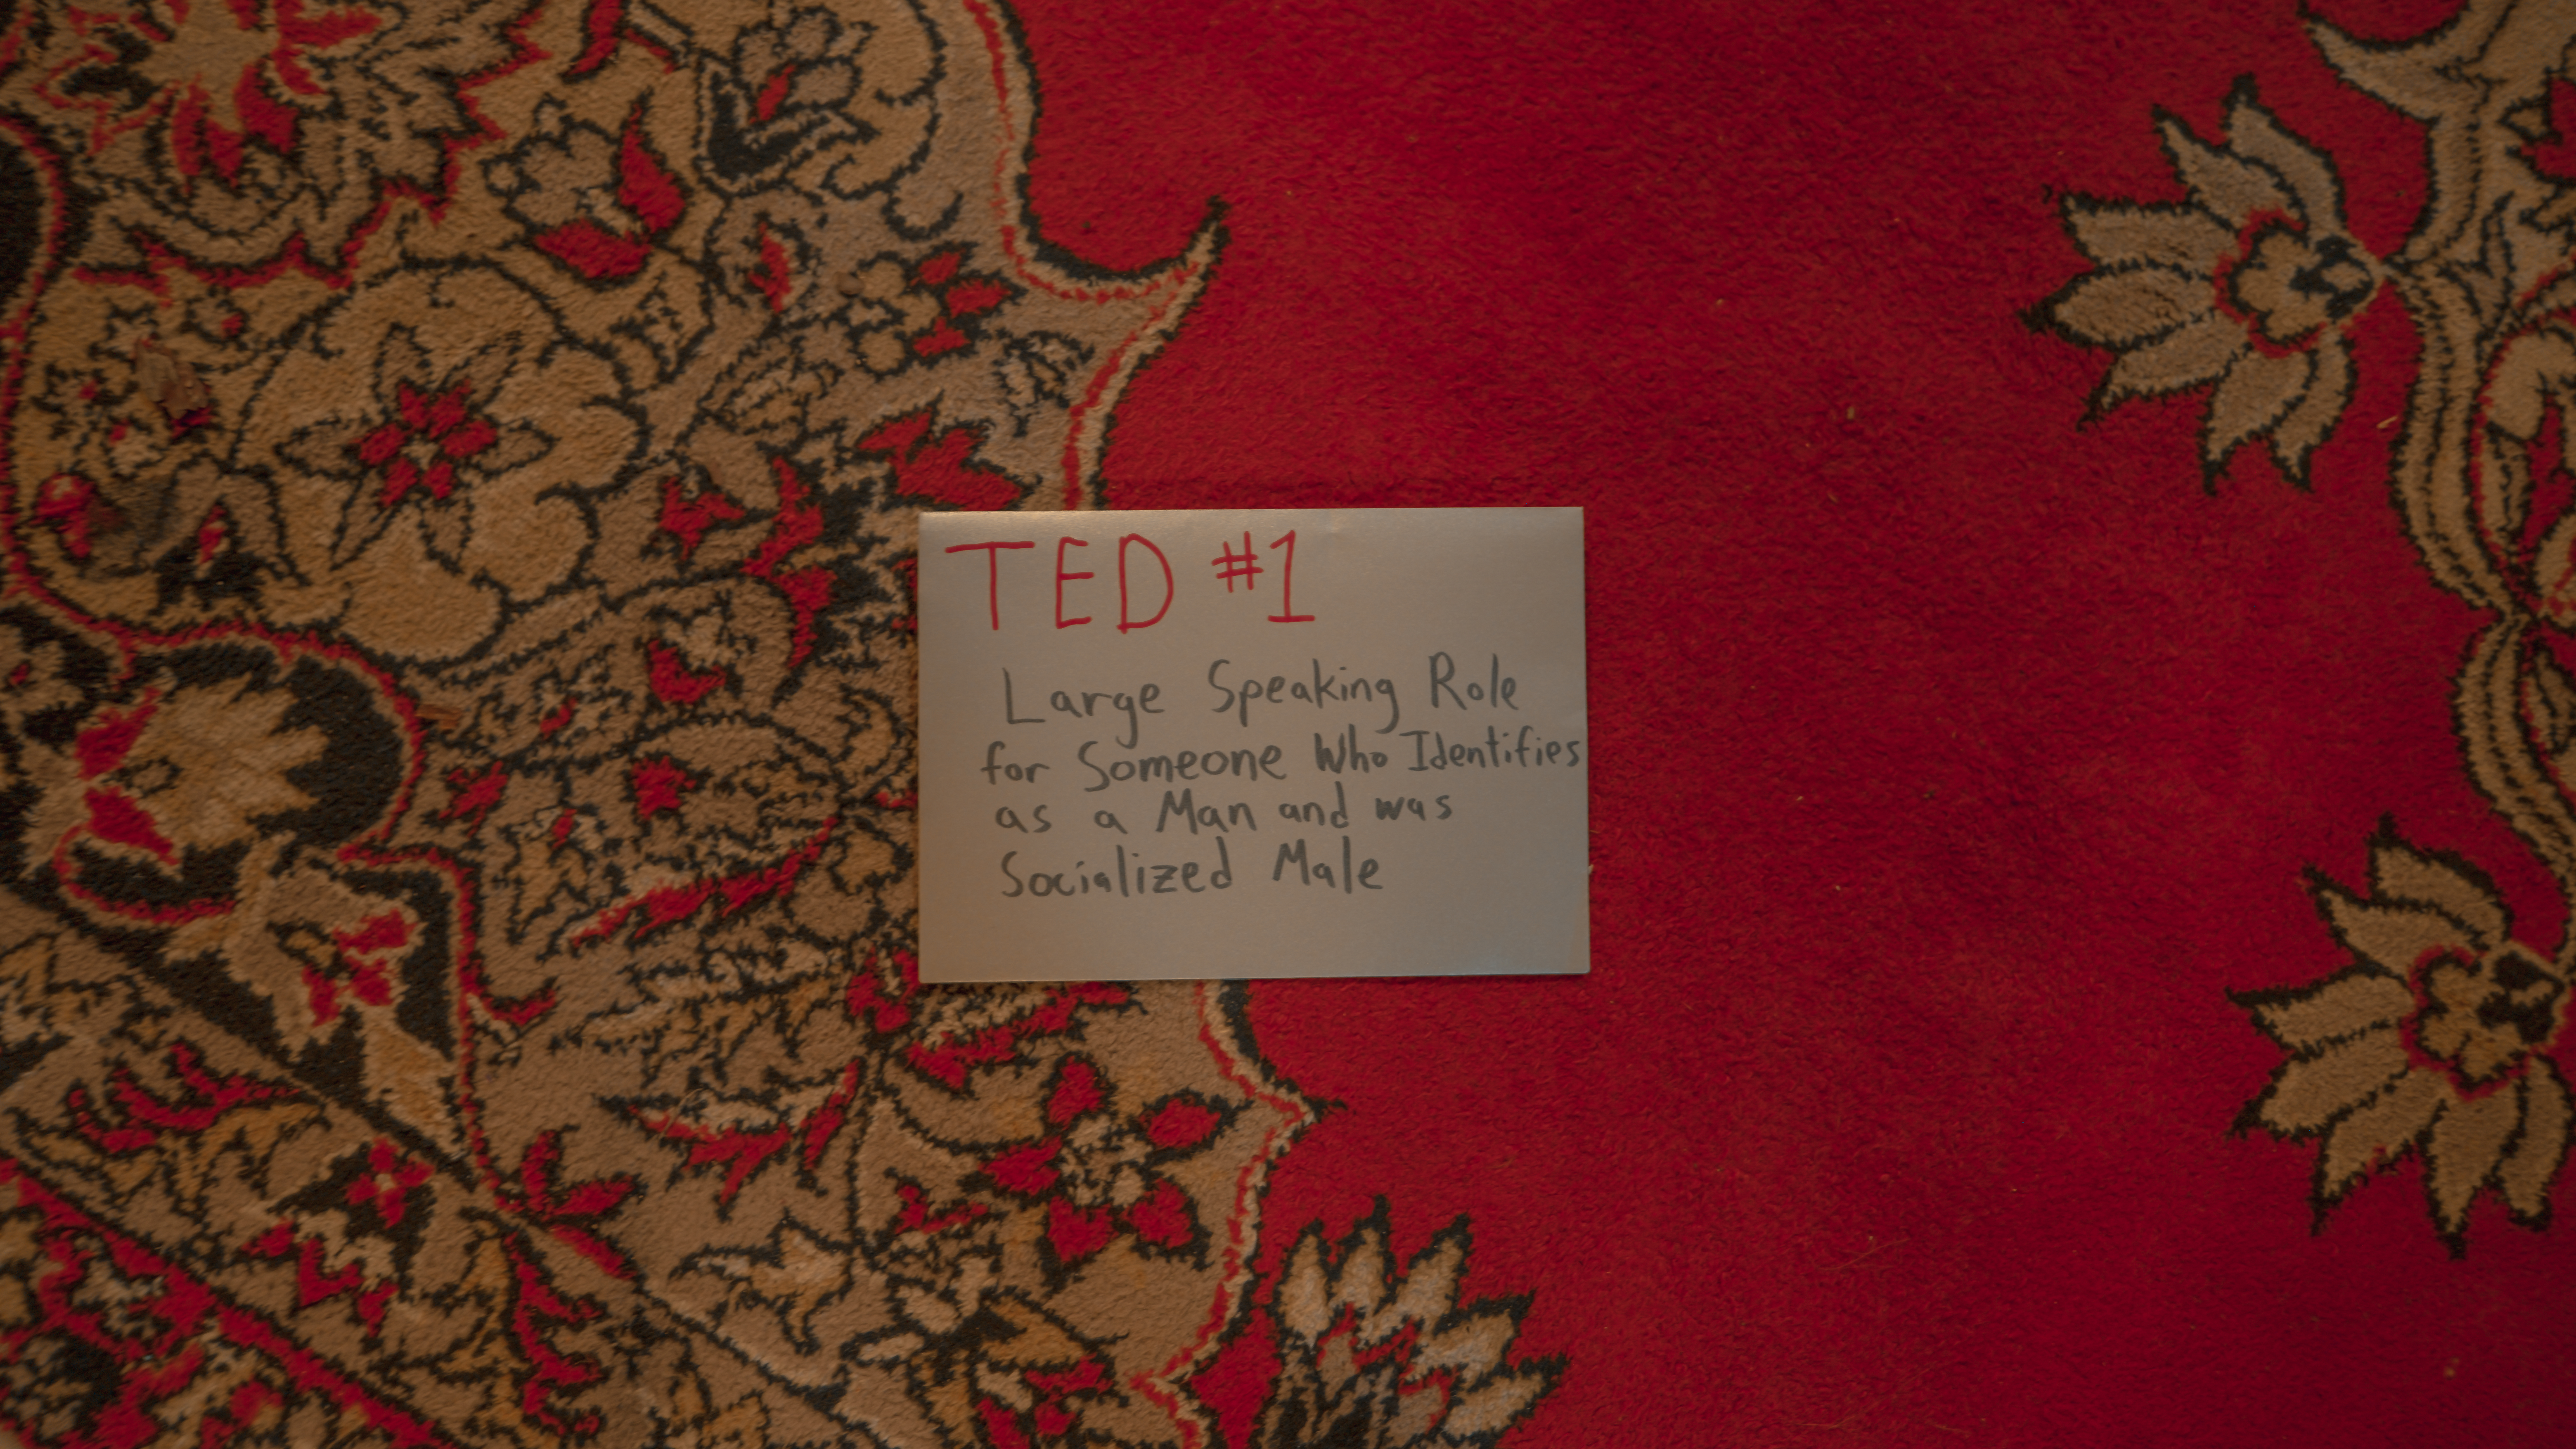 TED #1
Large Speaking Role
for Someone Who Identifies
as a Man and was
Socialized Male